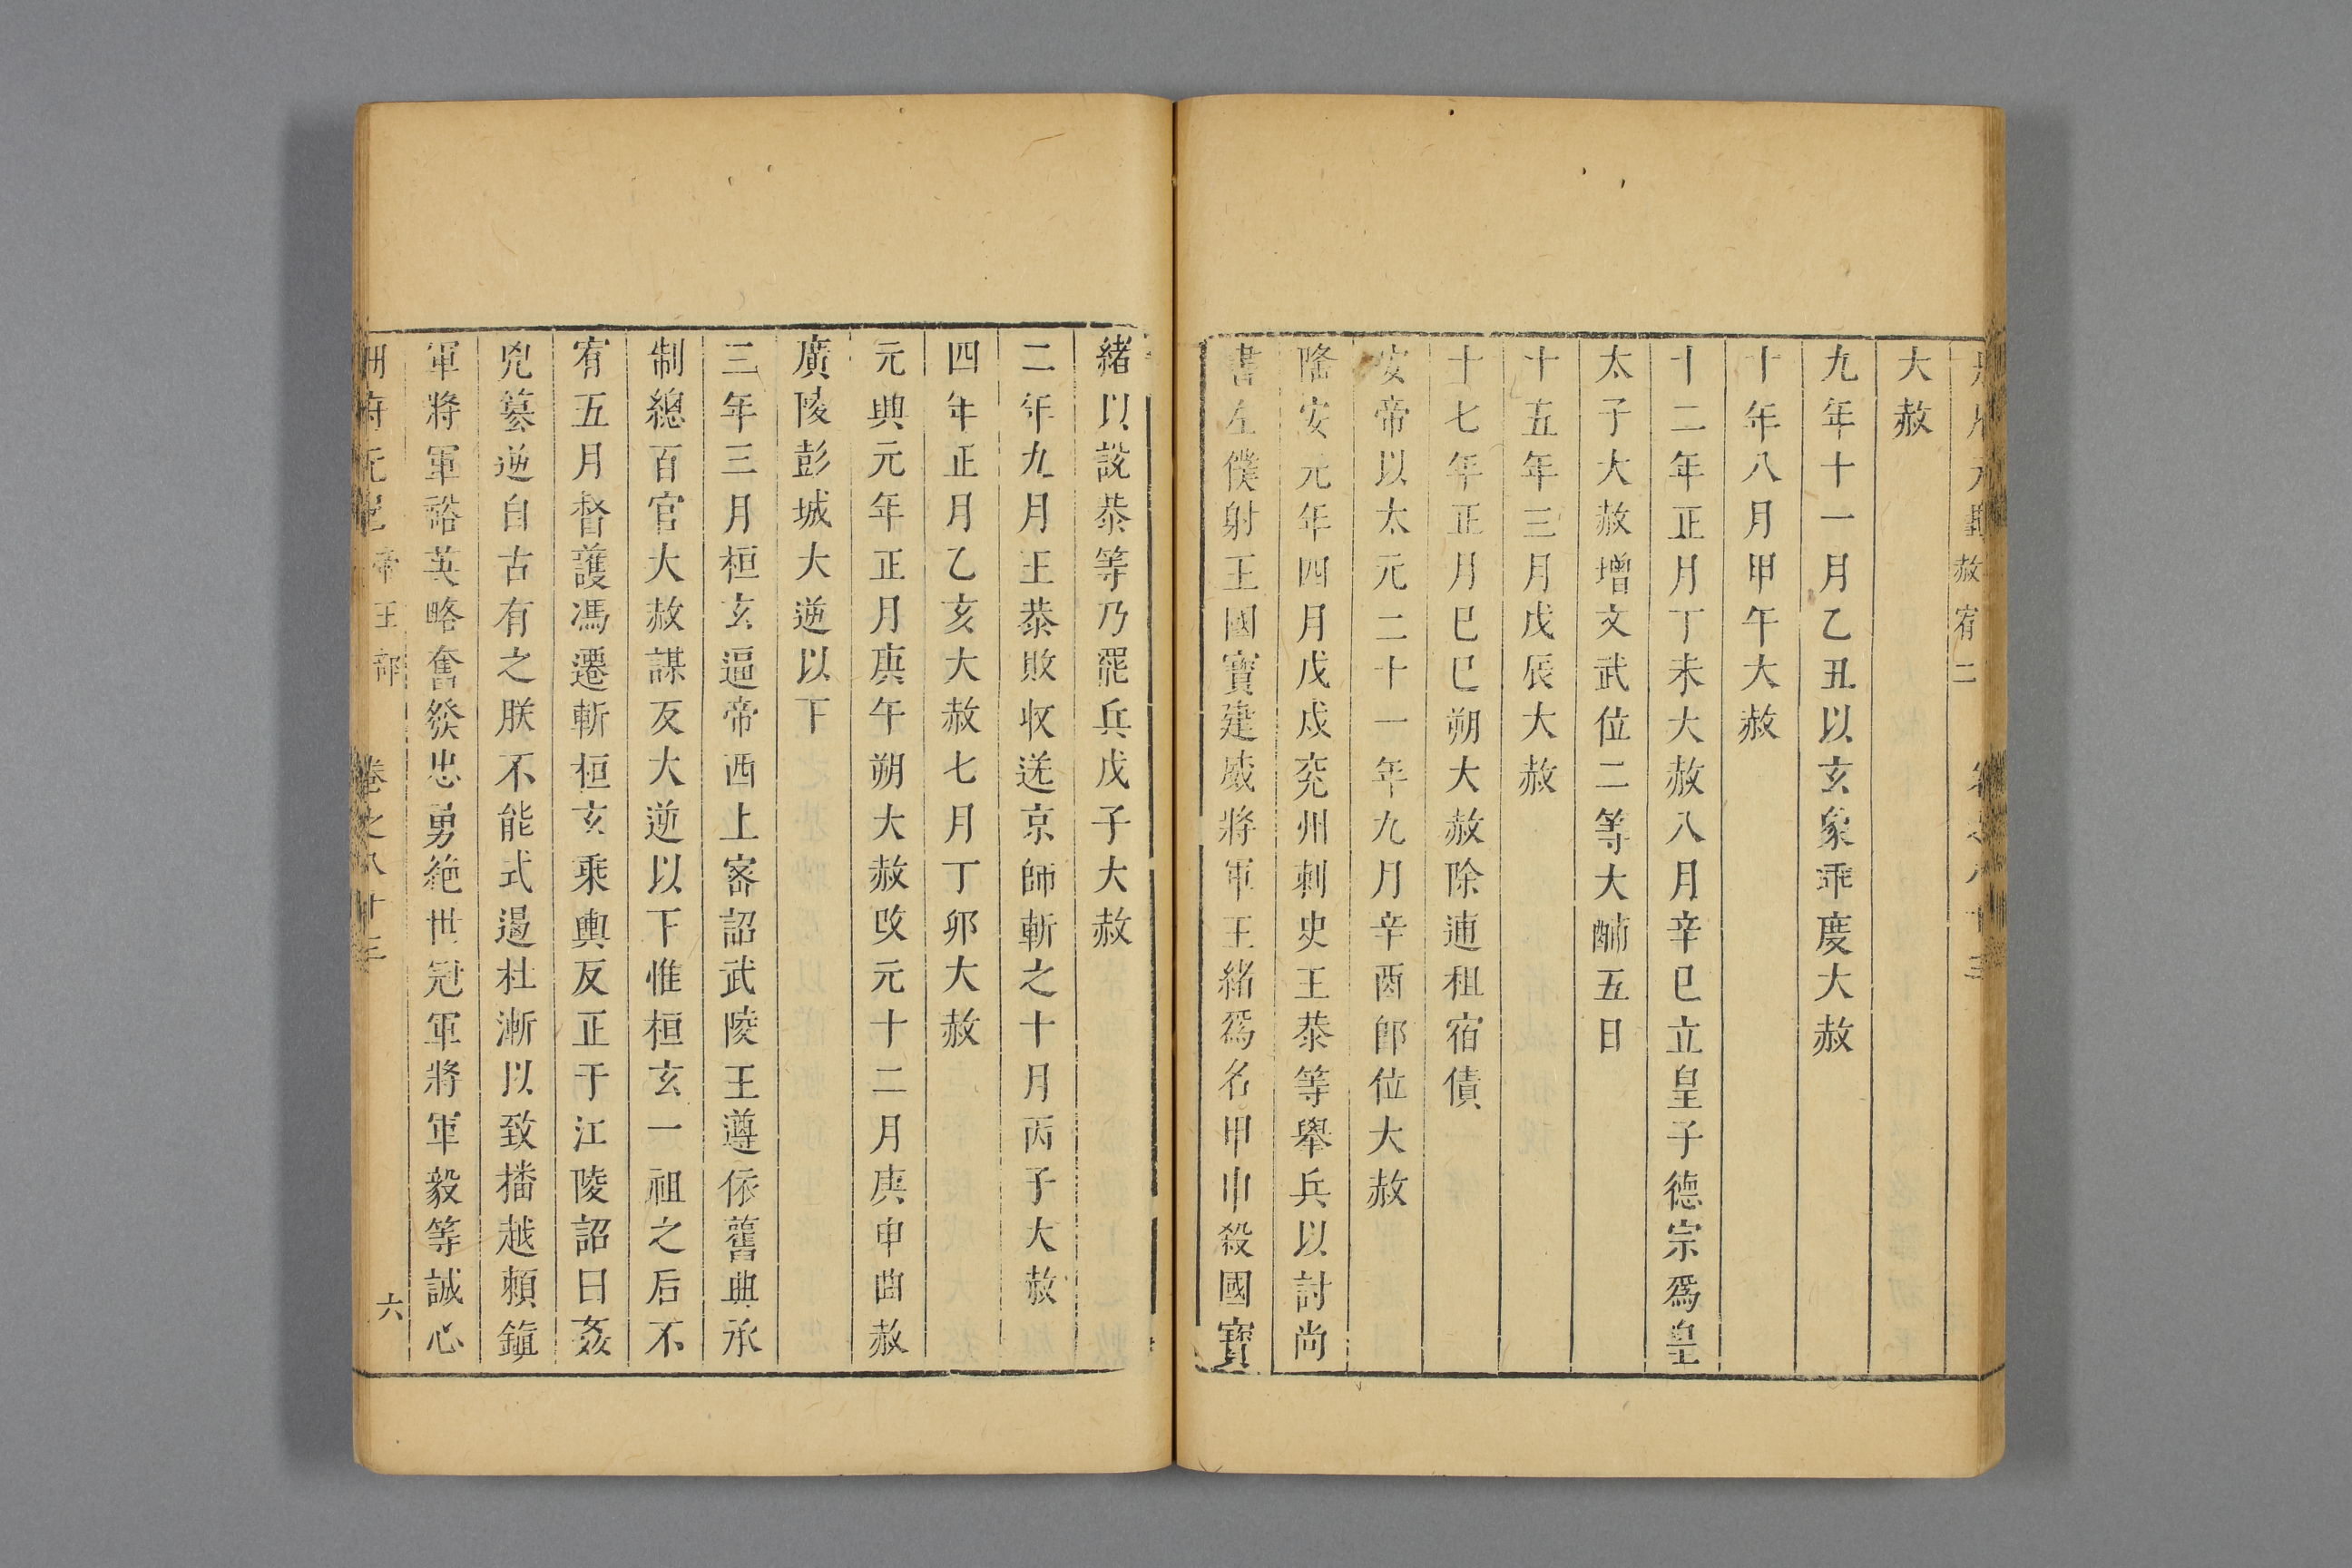 赦宥二
大赦
九年十一月乙丑以玄象乖度大赦
十年八月甲午大赦
十二年正月丁未大赦八月辛巳立皇子德宗爲皇
太子大赦增文武位二等大酺五日
十五年三月戊辰大赦
十七年正月巳巳朔大赦除逋租宿債
安帝以太元二十一年九月辛酉卽位大赦
隆安元年四月戊戌兖州刺史王恭等舉兵以討尚
書左僕射王國寶建威將軍王緒爲名甲申殺國寶
緒以說恭等乃罷兵戊子大赦
二年九月王恭敗收送京師斬之十月丙子大赦
四年正月乙亥大赦七月丁卯大赦
元興元年正月庚午朔大赦改元十二月庚申曲赦
廣陵彭城大逆以下
三年三月桓玄逼帝西上密詔武陵王遵依舊典承
制總百官大赦謀反大逆以下惟桓玄一祖之后不
宥五月督護馮遷斬桓玄乘輿反正于江陵詔曰姦
兇篡逆自古有之朕不能式遏杜漸以致播越賴鎮
軍將軍裕英略奮發忠勇絶世冠軍將軍毅等誠心
冊府元龜 帝王部 卷之八十三 六